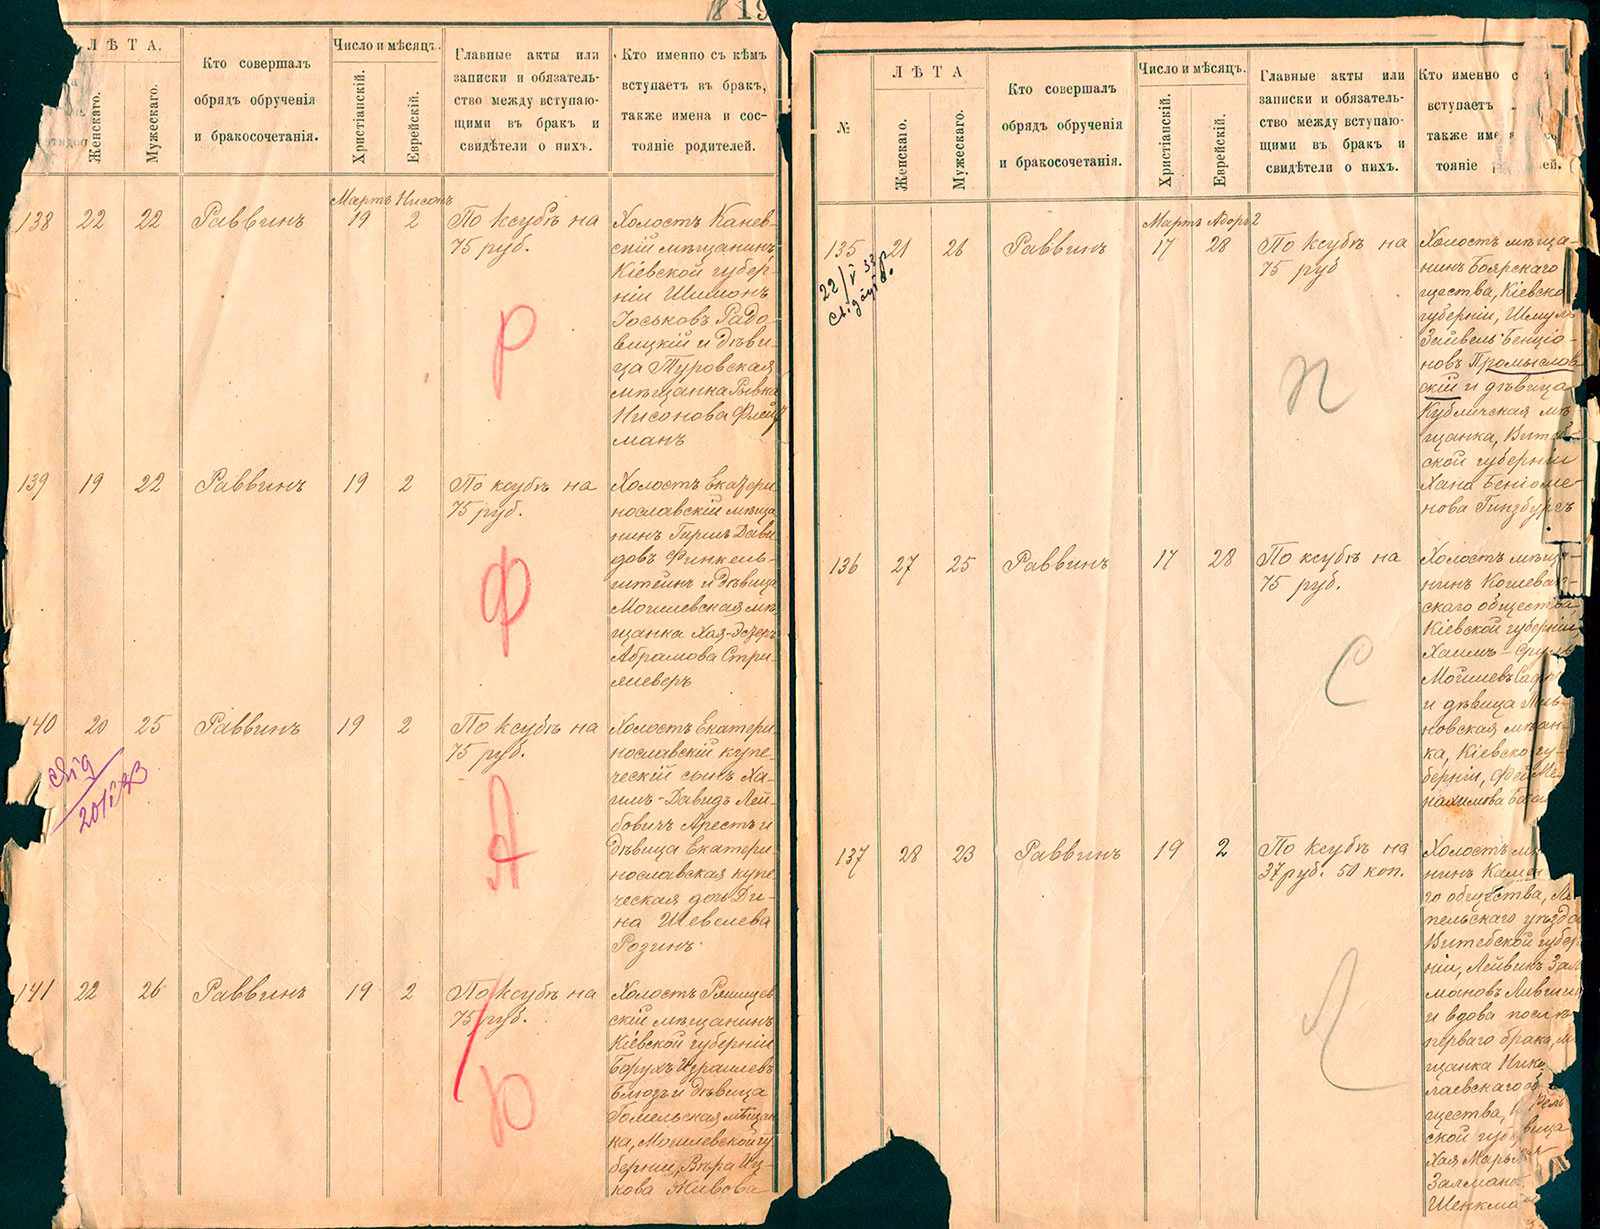 19
ЛѢТА.
Женскаго.
Мужескаго.
Кто совершалъ
обрядъ обрученія
и бракосочетанія.
Число и мѣсяцъ.
Христіанскій.
Еврейскій.
Главные акты или
записки и обязатель-
ство между вступаю-
щими въ бракъ и
свидѣтели о нихъ.
Кто именно съ кѣмъ
вступаетъ въ бракъ,
также имена и сос-
тояніе родителей.
Мартъ Нисонъ
138 22 22 Раввинъ 19 2
По ксубѣ на
75 руб.
Холостъ Канев-
скій мѣщанинъ,
Кіевской губер-
ніи Шимонъ
Іоськовъ Радо-
вицкій и дѣви-
ца Туровская
мѣщанка Рывка
Нисонова Флейш-
манъ
Р
139 19 22 Раввинъ 19 2
По ксубѣ на
75 руб.
Холостъ Екатери
нославскій мѣща
нинъ Гиршъ Дави
довъ Финкель-
штейнъ и дѣвица
Могилевская мѣ
щанка Хая-Эстеръ
Абрамова Стри-
миеверъ
Ф
140 20 25 Раввинъ 19 2
свід
20/I 33
По ксубѣ на
75 руб.
Холостъ Екатери
нославскій купе-
ческій сынъ Ха-
имъ-Давидъ Лей-
бовичъ Арестъ и
дѣвица Екатери-
нославская купе
ческая дочь Ди-
на Шевелева
Розинъ.
А
141 22 26 Раввинъ 19 2
По ксубѣ на
75 руб.
Холостъ Ржищев
скій мѣщанинъ
Кіевской губерніи
Борухъ Израилевъ
Блюзъ и дѣвица
Гомельская мѣщан
ка, Могилевской гу
берніи, Вѣра Иц-
кова Живова
Ю
№
ЛѢТА
Женскаго.
Мужескаго.
Кто совершалъ
обрядъ обрученія
и бракосочетанія.
Число и мѣсяцъ.
Христіанскій.
Еврейскій.
Главные акты или
записки и обязатель-
ство между вступаю-
щими въ бракъ и
свидѣтели о нихъ.
Кто именно с
вступаетъ
также име
тояніе р ей.
Мартъ Адоръ 2
135 21 26 Раввинъ 17 28
22/V 33 р
свідоцтво
По ксубѣ на
75 руб
Холостъ мѣща-
нинъ Боярскаго
щества, Кіевско
губерніи, Шмуль
Зейвель Бенціо-
новъ Промыслов
скій и дѣвица
Кубличская мѣ
щанка, Витеб-
ской губерніи
Хана Беніоме-
нова Гинзбургъ
П
136 27 25 Раввинъ 17 28
По ксубѣ на
75 руб.
Холостъ мѣща-
нинъ Кошеват-
скаго общества,
Кіевской губерніи
Хаимъ-Сруль
Мошиевъ
и дѣвица
новская мѣщан-
ка, Кіевско гу-
берніи, Фейга Ме-
нахимова
С
137 28 23 Раввинъ 19 2
По ксубѣ на
37 руб. 50 коп.
Холостъ мѣ
нинъ Камен
го общества, Ле
пельскаго уѣзда
Витебской губер
ніи, Лейвикъ Зал
мановъ Лившиц
и вдова послѣ
перваго брака, мѣ
щанка Нико-
лаевскаго об
щества,
ской губ
Хая Марьяся
Залмана
Шенкма
Л